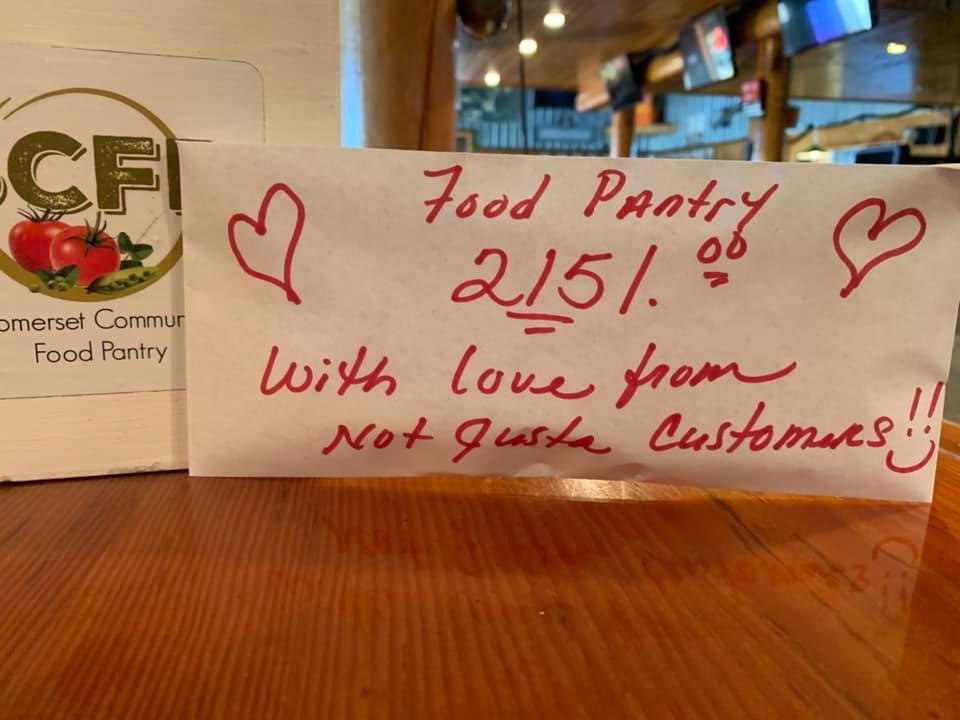 CF
omerset Commun
Food Pantry
Food Pantry
2151.00
With love from
Not Justa Customers!!